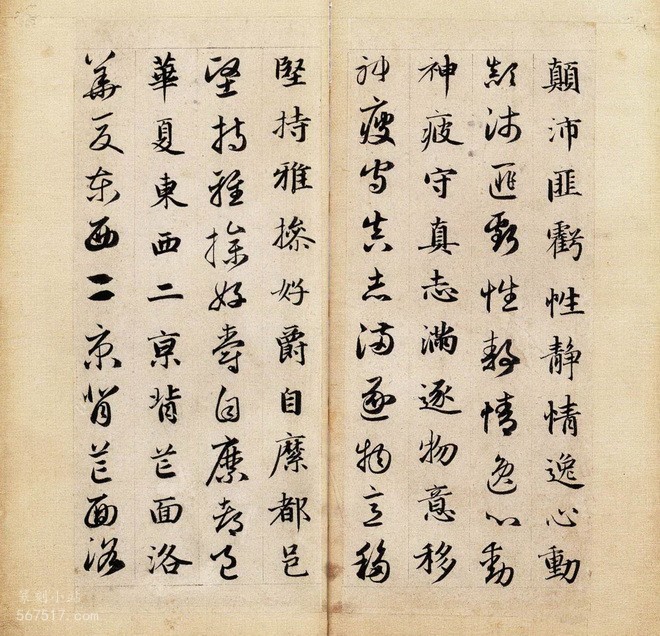 顛沛匪虧性靜情逸心動
顛沛匪虧性靜情逸心動
神疲守真志滿逐物意移
神疲守真志滿逐物意移
堅持雅操好爵自縻都邑
堅持雅操好爵自縻都邑
華夏東西二京背芒面洛
華夏東西二京背芒面洛
篆刻小站
567517.com